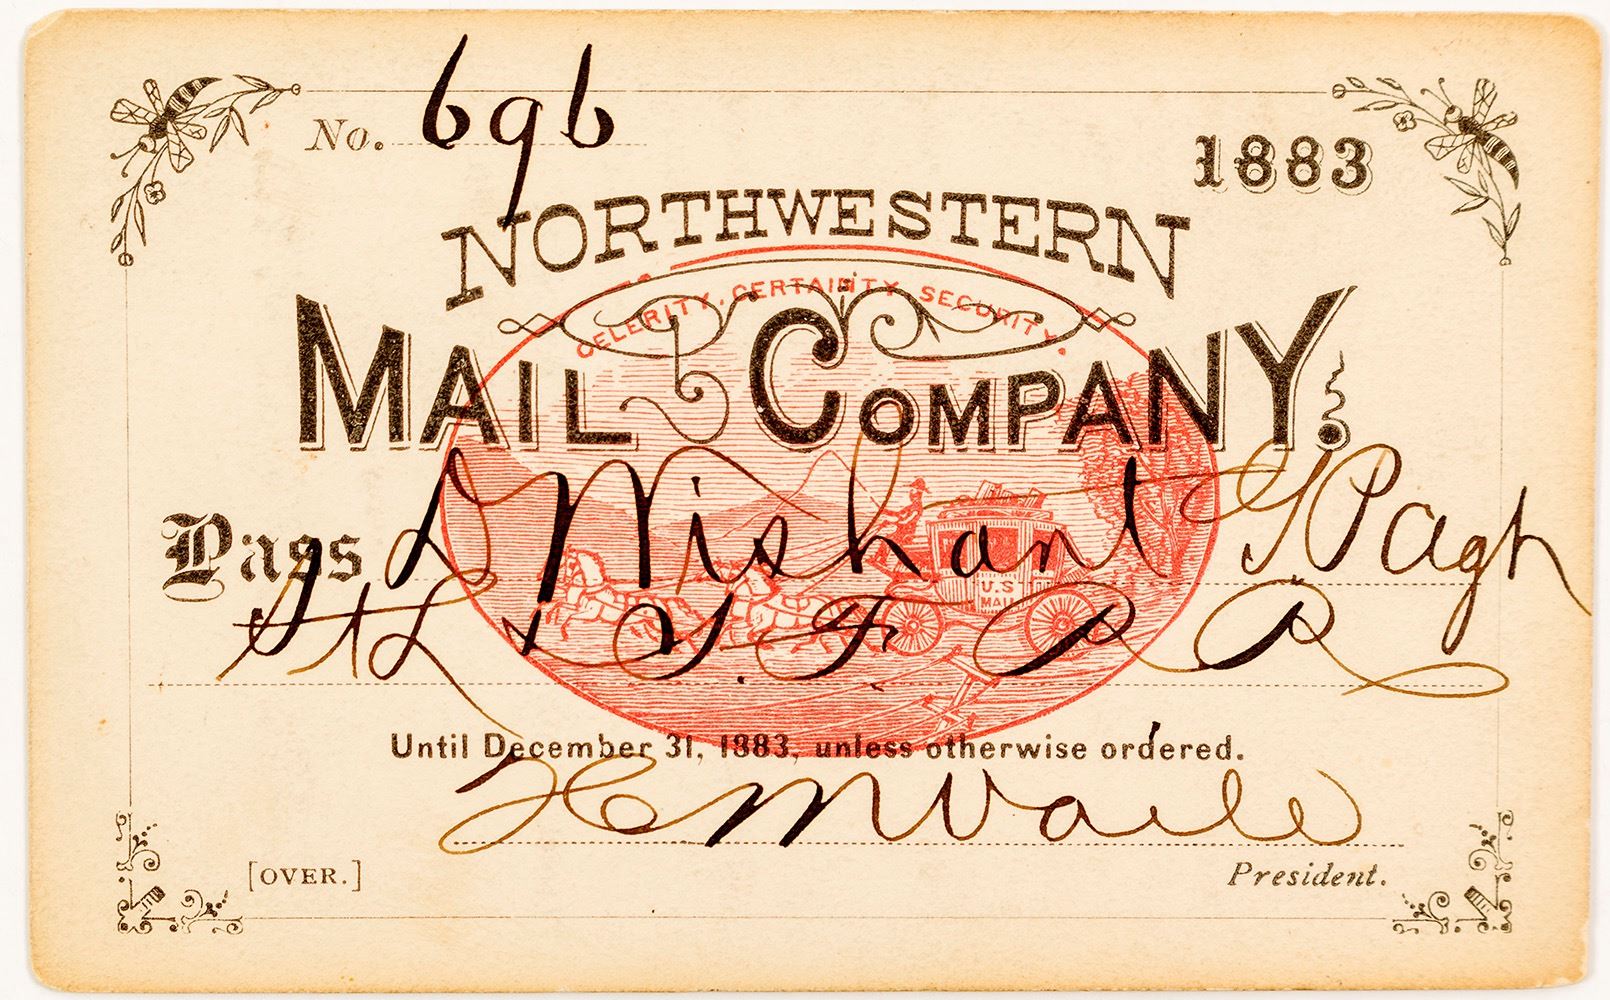 No. 696
1883
NORTHWESTERN
CELERITY. CERTAINTY SECURITY.
MAIL COMPANY.
Pass D Wishart G P Agt
U.S
MAIL
St L & S. F. R R
Until December 31, 1883, unless otherwise ordered.
H M Vaile
[OVER.]
President.